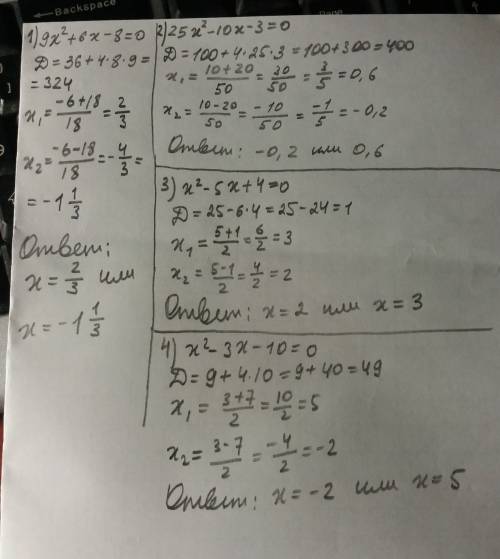 ← Backspace
1) 9x²+6x-8=0
D=36+4·8·9=
=324
x₁=(-6+18)/18=2/3
x₂=(-6-18)/18=-4/3=
=-1 1/3
Ответ:
x=2/3 или
x=-1 1/3
2) 25x²-10x-3=0
D=100+4·25·3=100+300=400
x₁=(10+20)/50=30/50=3/5=0,6
x₂=(10-20)/50=-10/50=-1/5=-0,2
Ответ: -0,2 или 0,6
3) x²-5x+4=0
D=25-6·4=25-24=1
x₁=(5+1)/2=6/2=3
x₂=(5-1)/2=4/2=2
Ответ: x=2 или x=3
4) x²-3x-10=0
D=9+4·10=9+40=49
x₁=(3+7)/2=10/2=5
x₂=(3-7)/2=-4/2=-2
Ответ: x=-2 или x=5